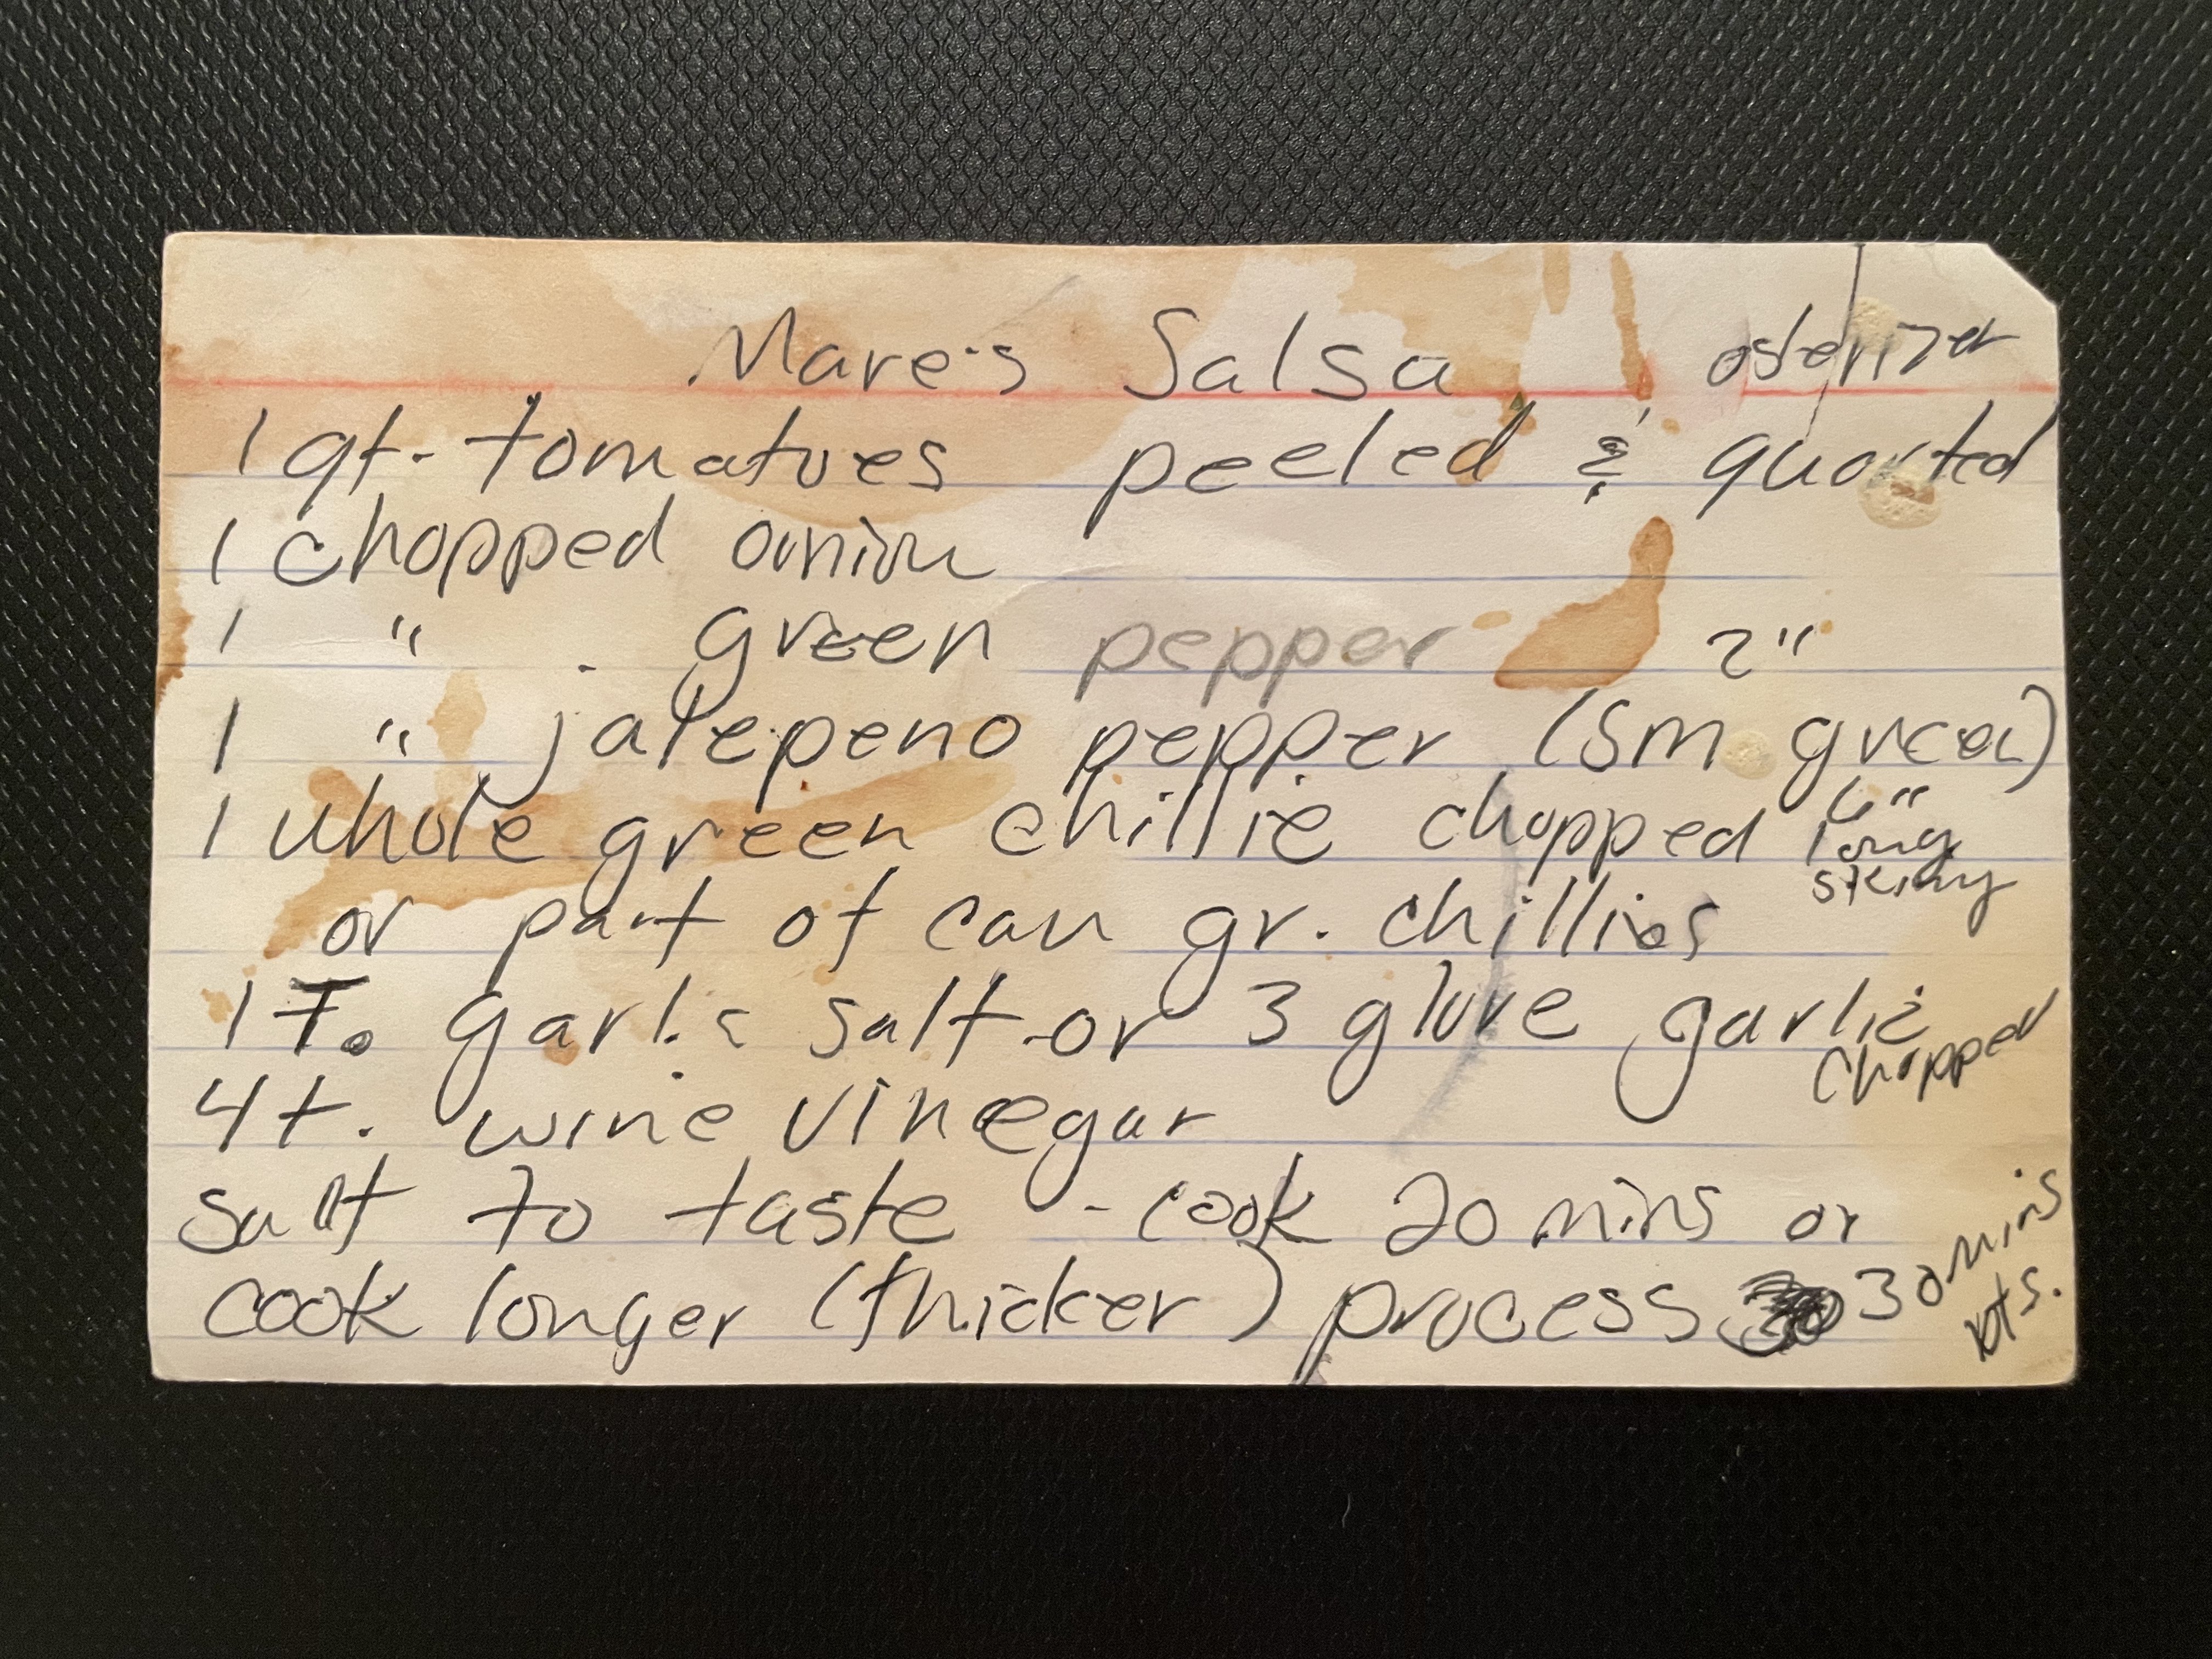 Mare's Salsa osterizer
1 qt. tomatoes peeled & quarted
1 chopped onion
1 " green pepper 2"
1 " jalepeno pepper (sm green)
1 whole green chillie chopped 6"
long
skinny
or part of can gr. chillies
1 T. garlic salt or 3 glove garlic
chopped
4 t. wine vinegar
salt to taste - cook 20 mins or
cook longer (thicker) process 30 mins
pts.